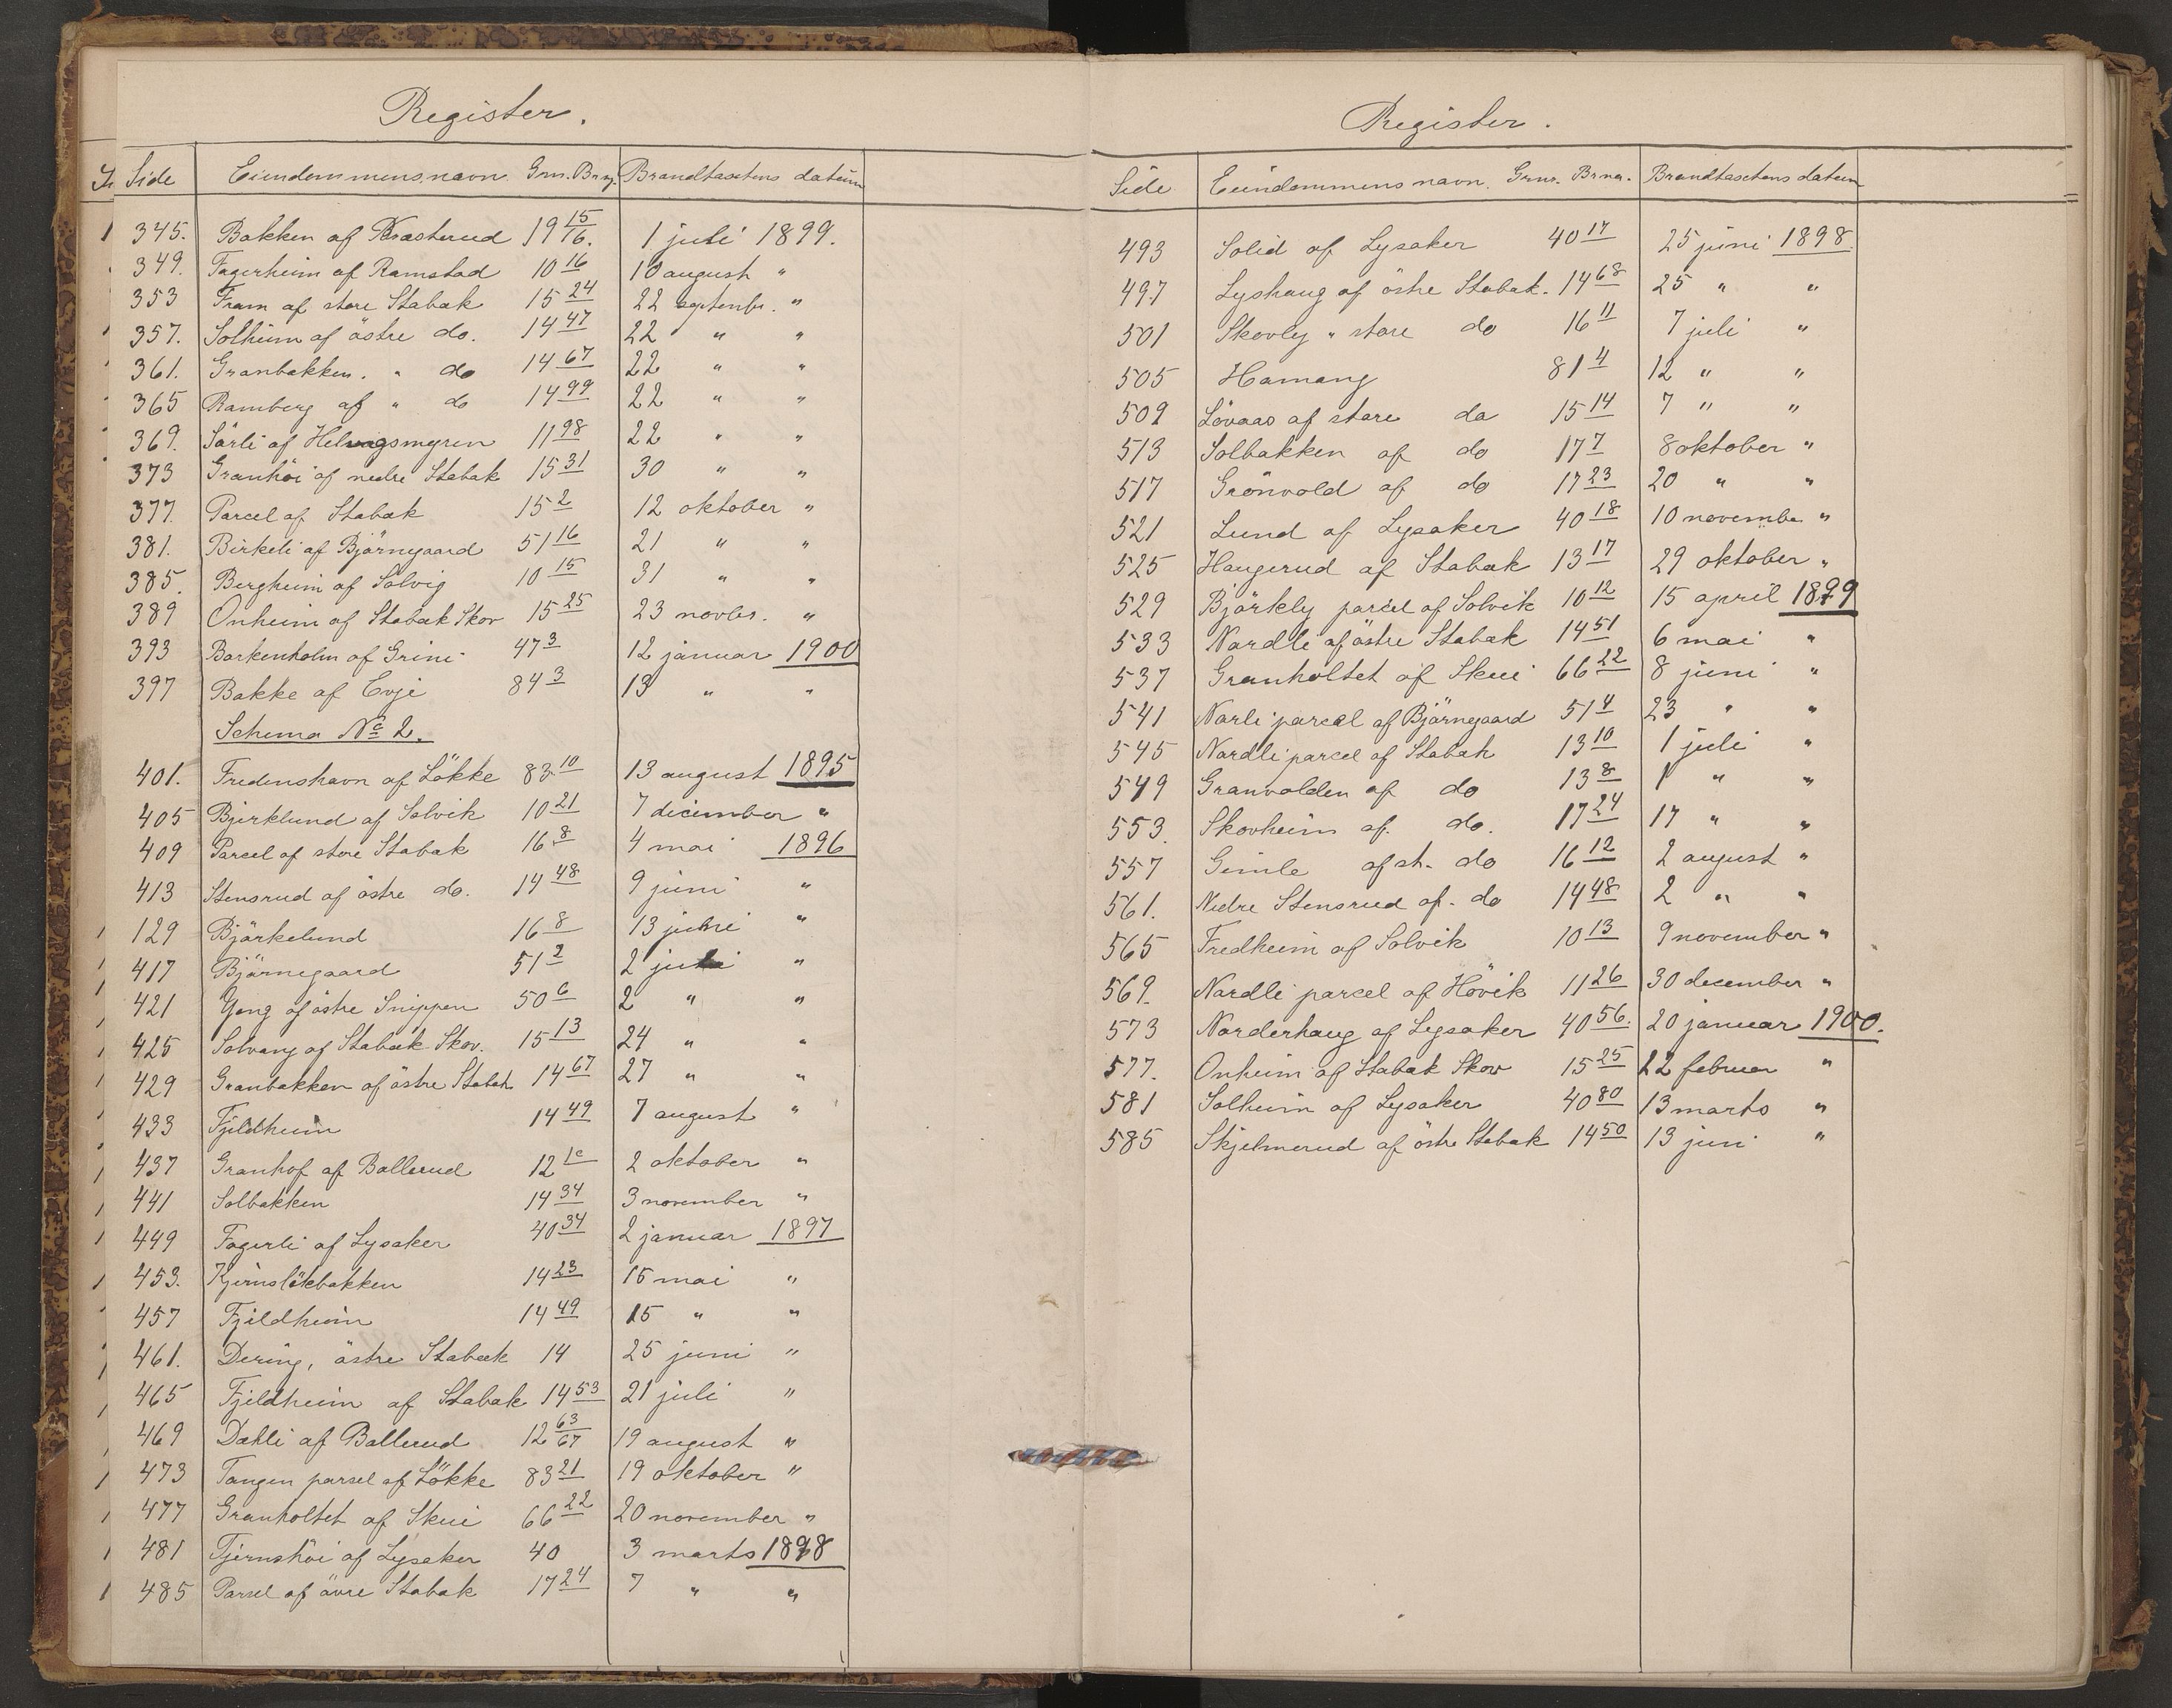 Register.
Side Eiendommens navn Grnr. Brnr. Brandtaxtens datum
345. Bakken af Krasterud 19 15/16. 1 juli 1899.
349. Fagerheim af Ramstad 10 16 10 august "
353 Fram af store Stabæk 15 24 22 septembr. "
357. Solheim af östre do. 14 47 22 " "
361. Granbakken. " do 14 67 22 " "
365 Ramberg af " do 14 99 22 " "
369. Sörli af Helvegsmyren 11 98 22 " "
373 Granhöi af nedre Stabæk 15 31 30 " "
377. Parcel af Stabæk 15 2 12 oktober "
381. Birkeli af Björnegaard 51 16 21 " "
385. Bergheim af Solvig 10 15 31 " "
389 Onheim af Stabæk Skov 15 25 23 novbr. "
393 Borkenholm af Grini 47 3 12 januar 1900
397 Bakke af Evje 84 3 13 " "
Schema No 2.
401. Fredenshavn af Lökke 83 10 13 august 1895
405 Bjerklund af Solvik 10 21 7 december "
409 Parcel af store Stabæk 16 8 4 mai 1896
413 Stensrud af östre do. 14 48 9 juni "
129 Björkelund 16 8 13 juni "
417 Björnegaard 51 2 2 juli "
421 Yong af östre Snippen 50 6 2 " "
425 Solvang af Stabæk Skov. 15 13 24 " "
429 Granbakken af östre Stabæk 14 67 27 " "
433 Fjeldheim 14 49 7 august "
437 Granhof af Ballerud 12 10 2 oktober "
441 Solbakken 14 34 3 november "
449 Fagerli af Lysaker 40 34 2 januar 1897
453. Kjernslökbakken 14 23 15 mai "
457 Fjeldheim 14 49 15 " "
461. Dering, östre Stabæk 14 25 juni "
465 Fjeldheim af Stabæk 14 53 21 juli "
469 Dahli af Ballerud 12 63/67 19 august "
473 Tangen parsel af Lökke 83 21 19 oktober "
477 Granholtet af Skui 66 22 20 november "
481 Tjernshöi af Lysaker 40 3 marts 1898
485 Parsel af övre Stabæk 17 24 7 " "
Register.
Side Eiendommens navn. Grnr. Brnr. Brandtaxtens datum
493 Solid af Lysaker 40 17 25 juni 1898.
497 Lyshaug af östre Stabæk. 14 68 25 " "
501 Skovly " store do 16 11 7 juli "
505 Hamang 81 4 12 " "
509 Lövaas af store do 15 14 7 " "
513 Solbakken af do 17 7 8 oktober "
517 Grönvold af do 17 23 20 " "
521 Lund af Lysaker 40 18 10 novembr "
525 Haugerud af Stabæk 13 17 29 oktober "
529 Björkly parcel af Solvik 10 12 15 april 1899
533 Nordli af östre Stabæk 14 51 6 mai "
537 Granholtet af Skui 66 22 8 juni "
541 Norli parcel af Björnegaard 51 4 23 " "
545 Nordli parcel af Stabæk 13 10 1 juli "
549 Granvolden af do 13 8 1 " "
553. Skovheim af. do. 17 24 17 " "
557 Gimle af st. do 16 12 2 august "
561. Nedre Stensrud af. do 14 48 2 " "
565 Fredheim af Solvik 10 13 9 november "
569. Nordli parcel af Hövik 11 26 30 december "
573 Norderhaug af Lysaker 40 56. 20 januar 1900.
577. Onheim af Stabæk Skov 15 25 22 februar "
581 Solheim af Lysaker 40 80 13 marts "
585 Skjelmerud af östre Stabæk 14 50 13 juni "